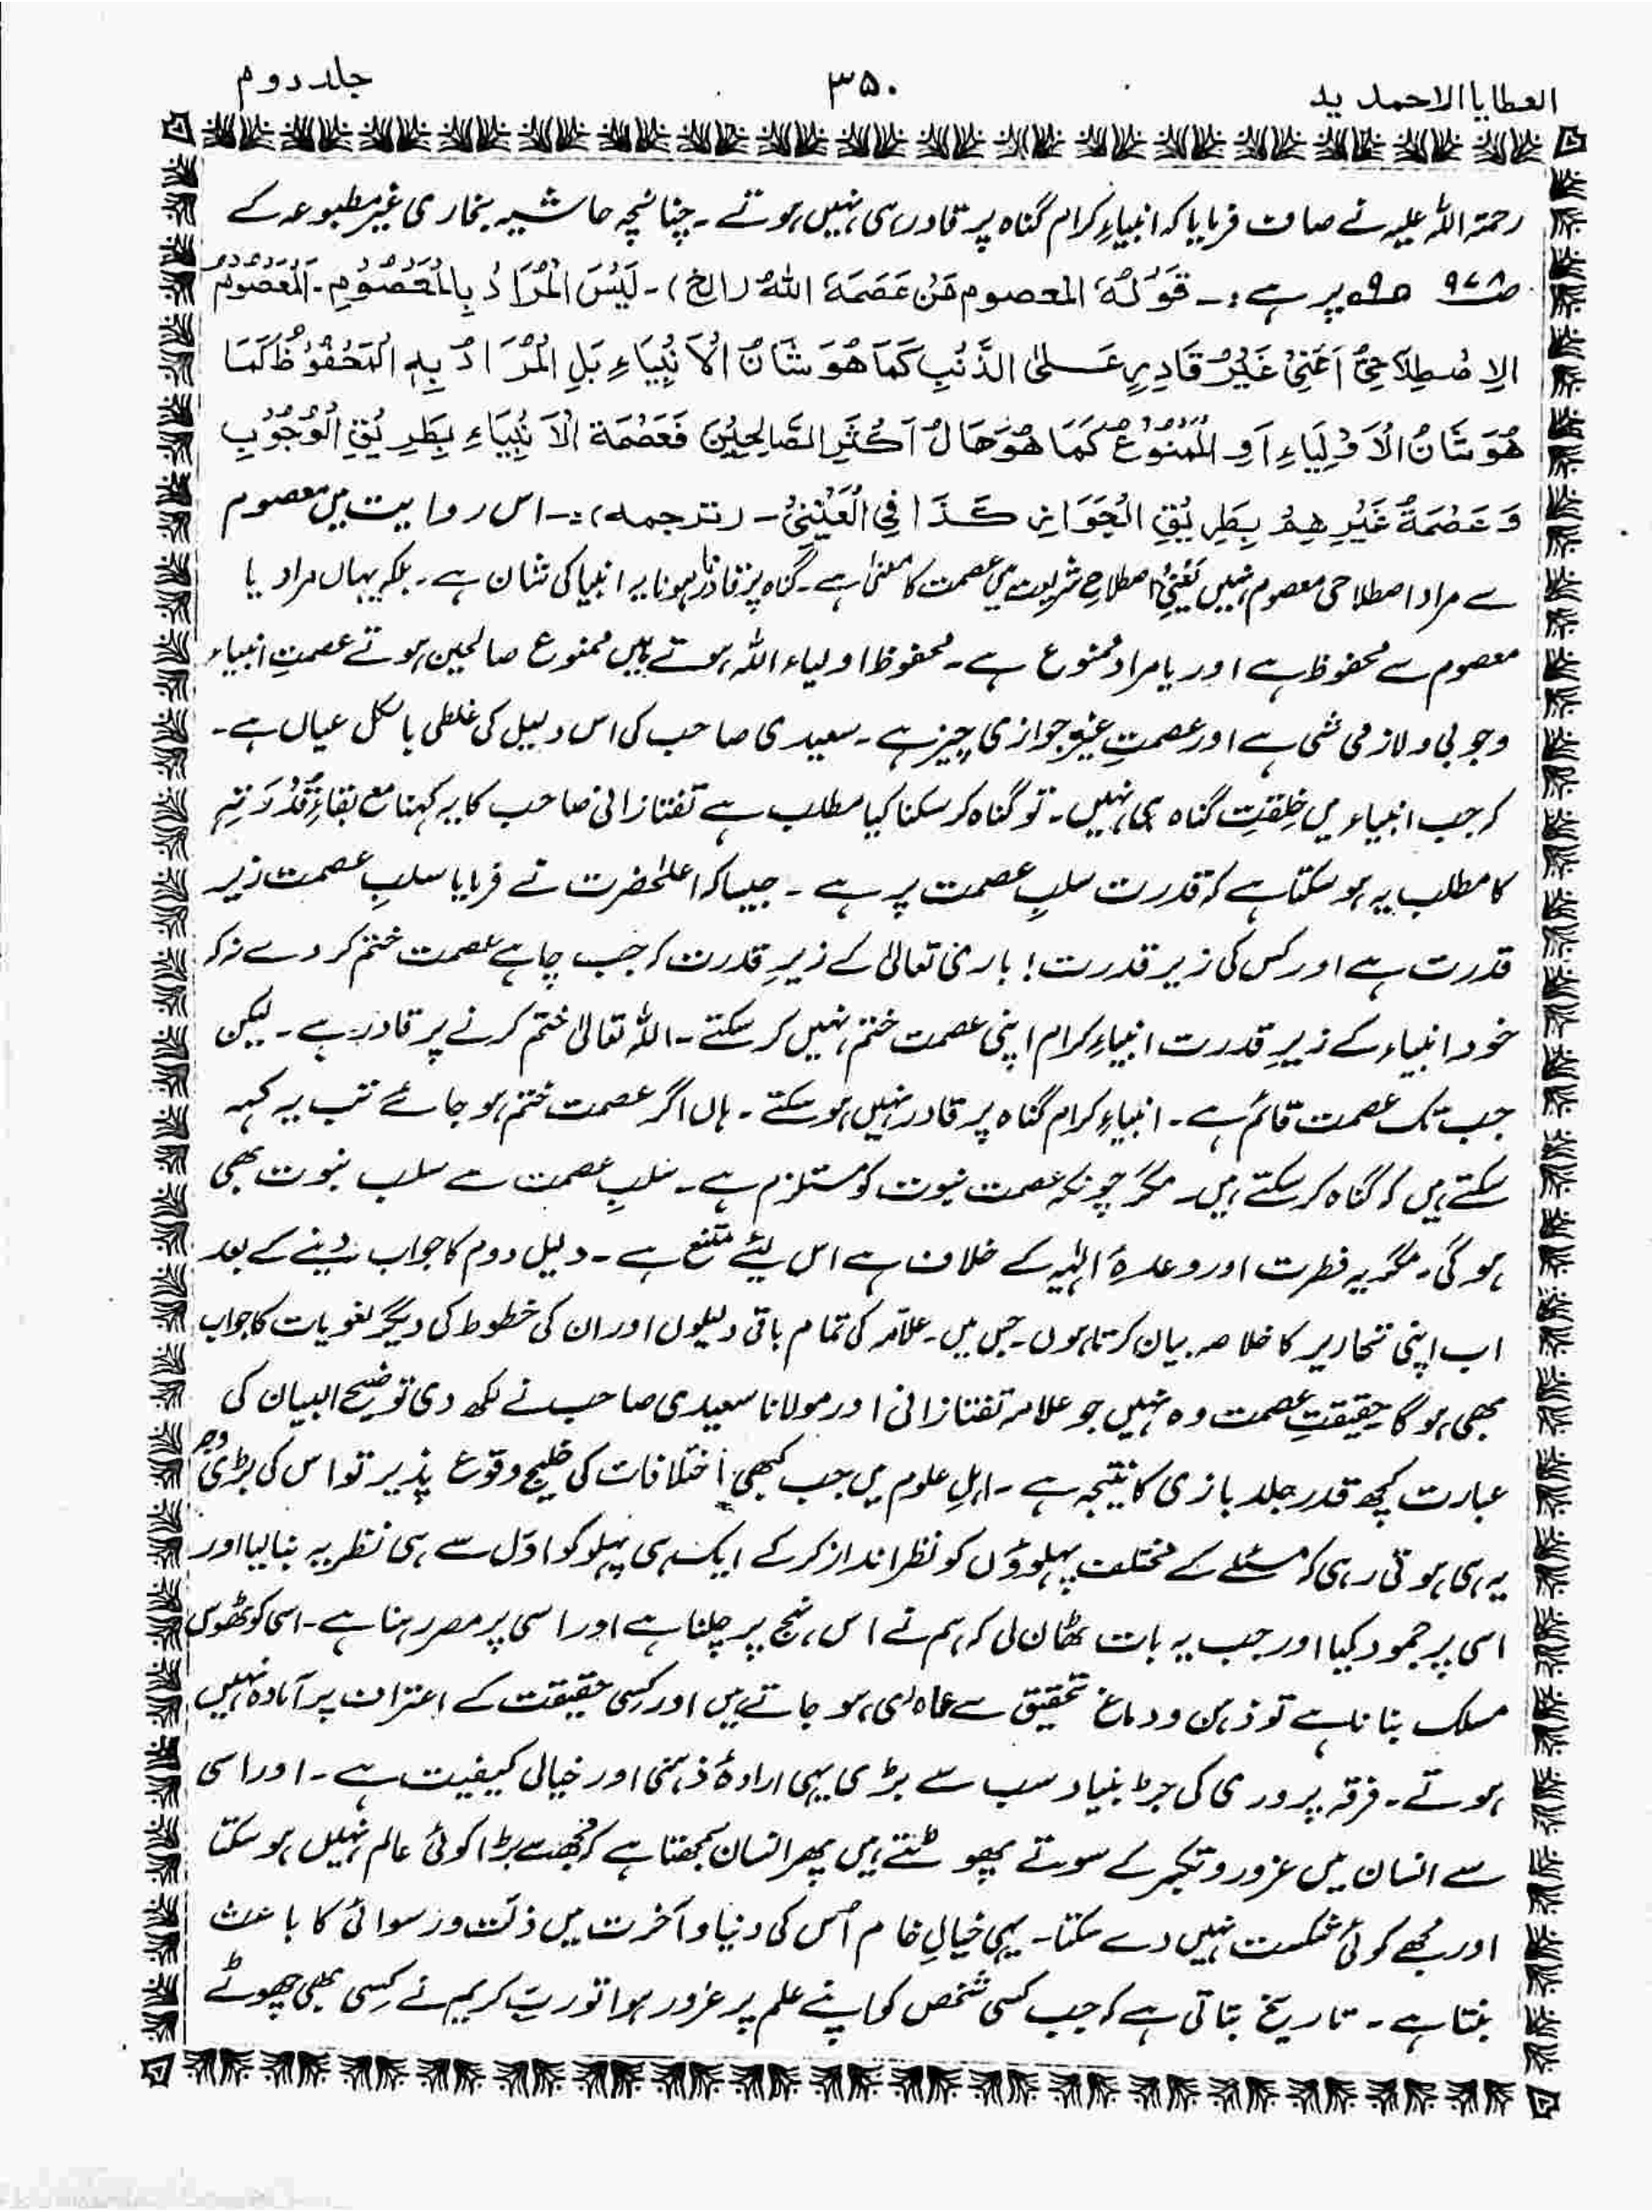 العطایا الاحمدیہ ۳۵۰ جلد دوم
رحمۃ اللہ علیہ نے صاف فرمایا کہ انبیاءِ کرام گناہ پر قادر ہی نہیں ہوتے۔ چنانچہ حاشیہ بخاری غیر مطبوعہ کے
پر ہے:۔ قَوْلُہٗ المعصوم مَنْ عَصَمَہُ اللہُ (الخ)۔ لَیْسَ الْمُرَادُ بِالْمَعْصُوْمِ۔ اَلْمَعْصُوْمُ
الِاصْطِلَاحِیُّ اَعْنِیْ غَیْرُ قَادِرٍ عَلٰی الذَّنْبِ کَمَا ھُوَ شَانُ الْاَنْبِیَاءِ بَلِ الْمُرَادُ بِہِ الْمَحْفُوْظُ کَمَا
ھُوَ شَانُ الْاَوْلِیَاءِ اَوِ الْمَمْنُوْعُ کَمَا ھُوَ حَالُ اَکْثَرِ الصَّالِحِیْنَ فَعَصْمَۃُ الْاَنْبِیَاءِ بِطَرِیْقِ الْوُجُوْبِ
وَ عَصْمَۃُ غَیْرِھِمْ بِطَرِیْقِ الْجَوَازِ کَذَا فِی الْعَیْنِیْ۔ (ترجمہ):۔ اس روایت میں معصوم
سے مراد اصطلاحی معصوم نہیں یَعْنِیْ اصطلاحِ شریعت میں عصمت کا معنیٰ ہے۔ گناہ پر قادر نا ہونا یہ انبیا کی شان ہے۔ بلکہ یہاں مراد یا
معصوم سے محفوظ ہے اور یا مراد ممنوع ہے۔ محفوظ اولیاء اللہ ہوتے ہیں ممنوع صالحین ہوتے عصمتِ انبیاء
وجوبی و لازمی شی ہے اور عصمتِ غیر جوازی چیز ہے۔ سعیدی صاحب کی اس دلیل کی غلطی بالکل عیاں ہے۔
کہ جب انبیاء میں خِلقتِ گناہ ہی نہیں۔ تو گناہ کر سکنا کیا مطلب ہے تفتازانی صاحب کا یہ کہنا مع بقاءِ قُدْرَتِہٖ
کا مطلب یہ ہو سکتا ہے کہ قدرت سلبِ عصمت پر ہے۔ جیسا کہ اعلٰحضرت نے فرمایا سلبِ عصمت زیر
قدرت ہے اور کس کی زیر قدرت! باری تعالٰی کے زیرِ قدرت کہ جب چاہے عصمت ختم کر دے نہ کہ
خود انبیاء کے زیرِ قدرت انبیاءِ کرام اپنی عصمت ختم نہیں کر سکتے۔ اللہ تعالٰی ختم کرنے پر قادر ہے۔ لیکن
جب تک عصمت قائم ہے۔ انبیاءِ کرام گناہ پر قادر نہیں ہو سکتے۔ ہاں اگر عصمت ختم ہو جائے تب یہ کہہ
سکتے ہیں کہ گناہ کر سکتے ہیں۔ مگر چونکہ عصمت نبوت کو مستلزم ہے۔ سلبِ عصمت سے سلب نبوت بھی
ہو گی۔ مگر یہ فطرت اور وعدۂ الہٰیہ کے خلاف ہے اس لیئے ممتنع ہے۔ دلیل دوم کا جواب دینے کے بعد
اب اپنی تحاریر کا خلاصہ بیان کرتا ہوں۔ جس میں۔ علامہ کی تمام باقی دلیلوں اور ان کی خطوط کی دیگر لغویات کا جواب
بھی ہو گا حقیقتِ عصمت وہ نہیں جو علامہ تفتازانی اور مولانا سعیدی صاحب نے لکھ دی توضیح البیان کی
عبارت کچھ قدر جلد بازی کا نتیجہ ہے۔ اہلِ علوم میں جب کبھی اختلافات کی خلیج وقوع پذیر تو اس کی بڑی وجہ
یہ ہی ہوتی رہی کہ مسئلے کے مختلف پہلوؤں کو نظر انداز کر کے ایک ہی پہلو کو اوّل سے ہی نظریہ بنا لیا اور
اسی پر جمود کیا اور جب یہ بات ٹھان لی کہ ہم نے اس نہج پر چلنا ہے اور اسی پر مصر رہنا ہے۔ اسی کو ٹھوس
مسلک بنانا ہے تو ذہن و دماغ تحقیق سے عاری ہو جاتے ہیں اور کسی حقیقت کے اعتراف پر آمادہ نہیں
ہوتے۔ فرقہ پروری کی جڑ بنیاد سب سے بڑی یہی ارادۂ ذہنی اور خیالی کیفیت ہے۔ اور اسی
سے انسان میں غرور و تکبر کے سوتے پھوٹتے ہیں پھر انسان سمجھتا ہے کہ مجھ سے بڑا کوئی عالم نہیں ہو سکتا
اور مجھے کوئی شکست نہیں دے سکتا۔ یہی خیالِ خام اُس کی دنیا و آخرت میں ذلت و رسوائی کا باعث
بنتا ہے۔ تاریخ بتاتی ہے کہ جب کسی شخص کو اپنے علم پر غرور ہوا تو ربِ کریم نے کِسی بھی چھوٹے